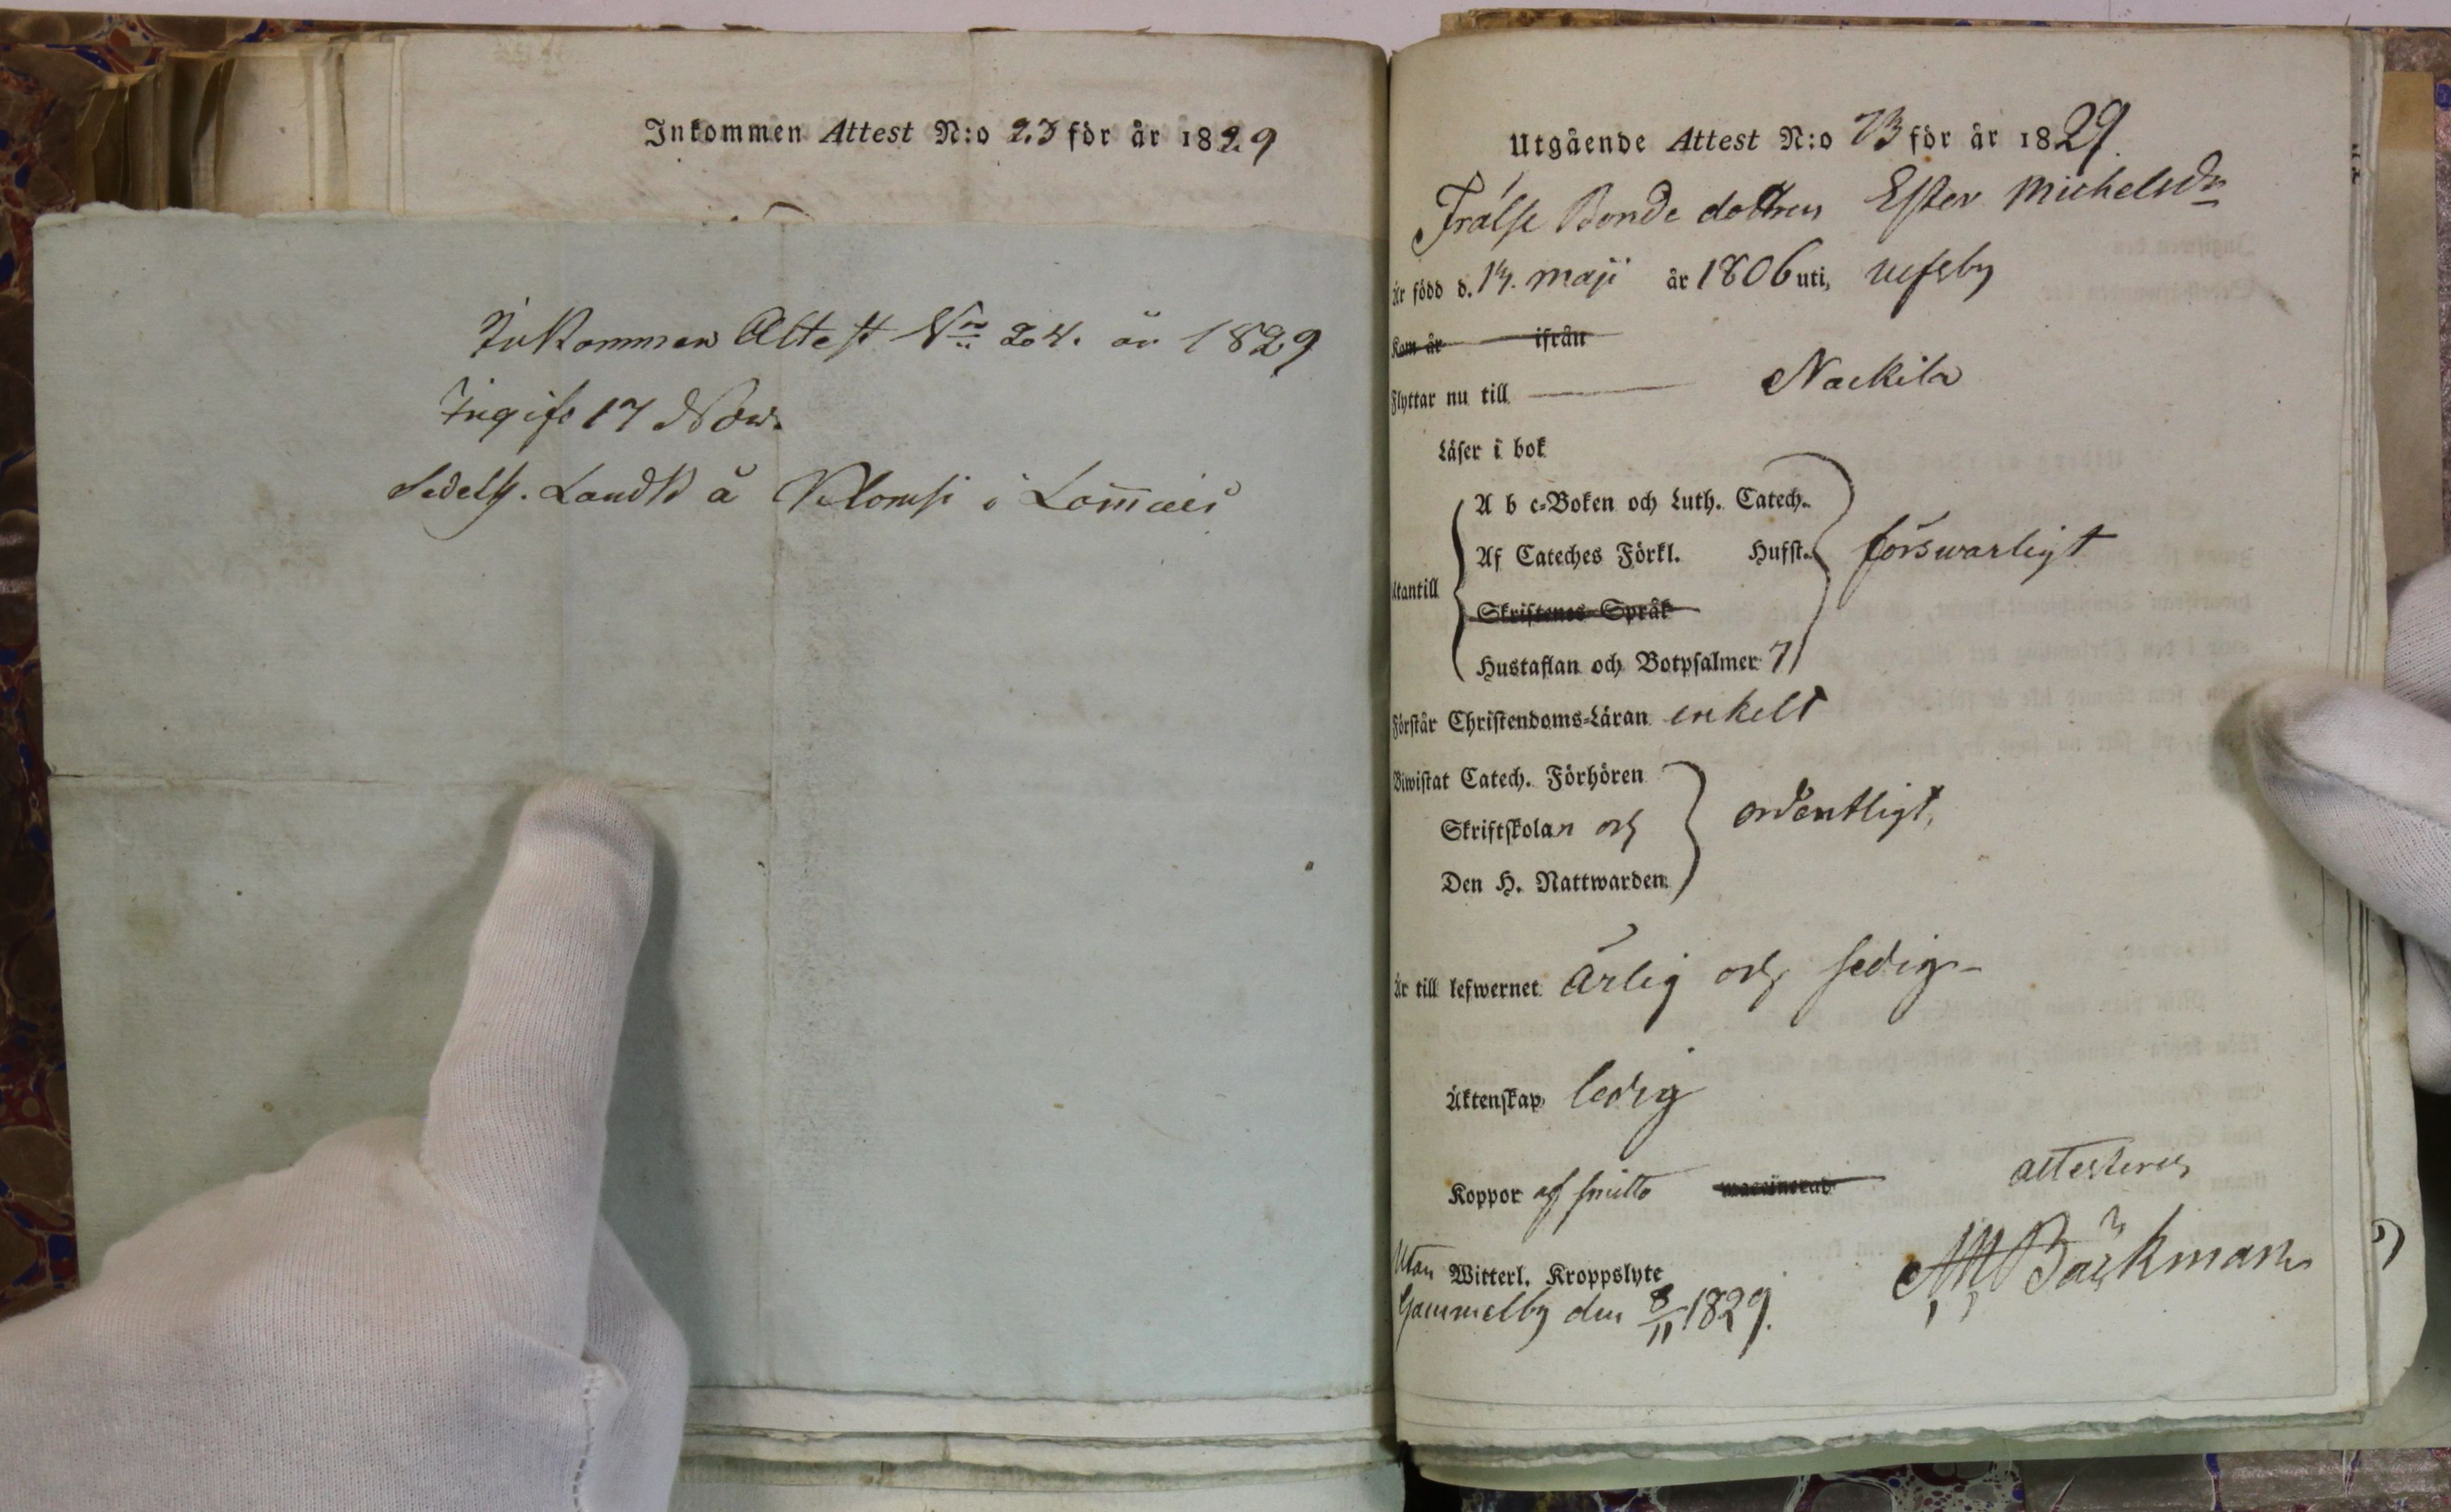 Inkommen Attest N:o 23 för år 1829
Inkommen Attest No 24. år 1829
Ingifs 17 Nov.
å Klomsi i Lom̅ais
Utgående Attest N:o 73 för år 1829.
Frälse Bonde dottren Ester Michelsdr
Är född d. 14. maji år 1806 uti,
Kom år ifrån
Flyttar nu till Nackila
Läser i bok
A b c-Boken och Luth. Catech.
Af Cateches Förkl. Husst. försvarligt
Utantill
Skriftenes Språk
Hustaflan och Botpsalmer 7
Förstår Christendoms-Läran enkelt
Biwistat Catech. Förhören
Skriftskolan och ordentligt,
Den H. Nattwarden
Är till lefwernet ärlig och sedig
Äktenskap ledig
Koppor af smitto waccinerad attesteras
Utan Witterl. Kroppslyte Bäckman
Gammelby den 8/11 1829.